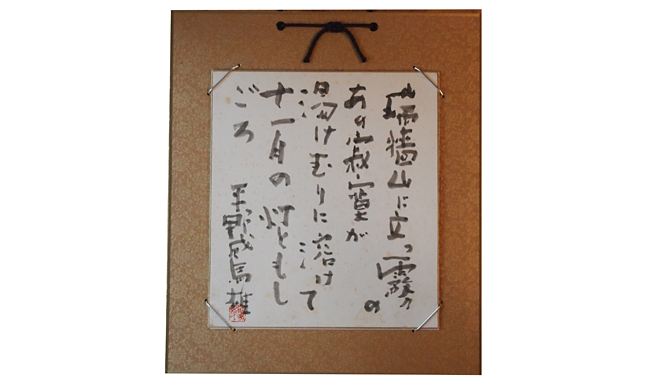 瑞牆山に立つ霧の
あの寂寞が
湯けむりに溶けて
十一月の灯ともし
ごろ
平野威馬雄